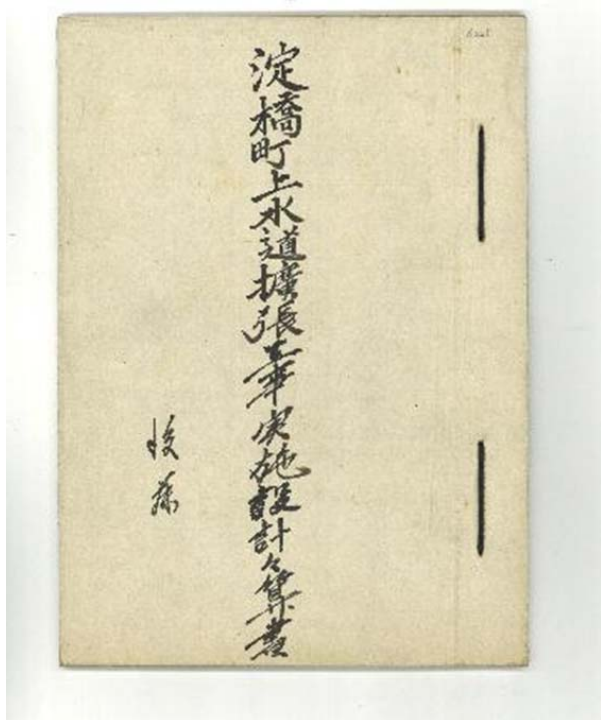 淀橋町上水道擴張工事実施設計々算書